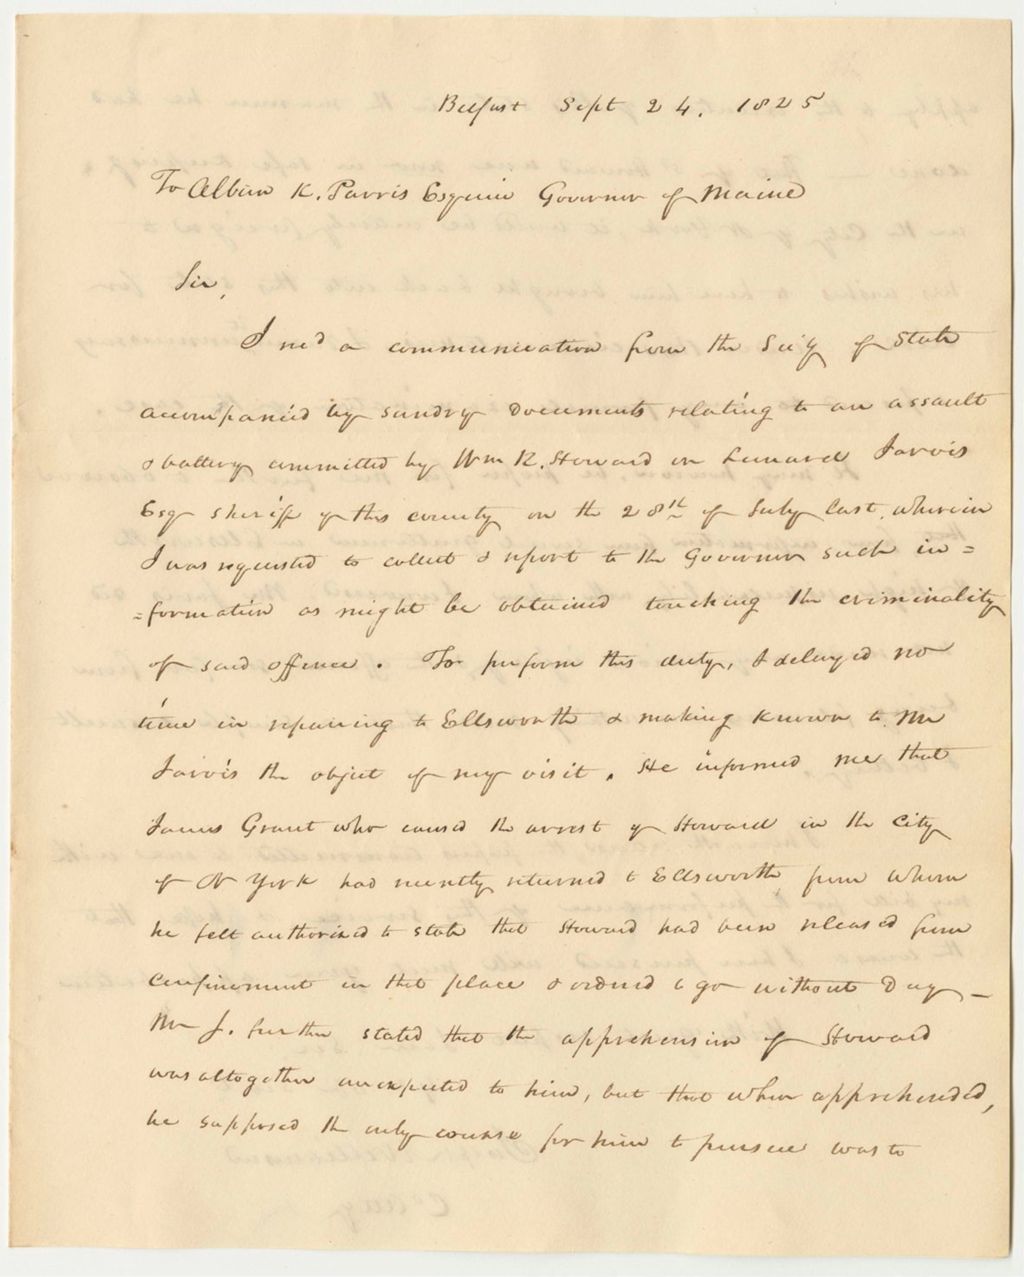 Belfast Sept 24. 1825
To Albion K. Parris Esquire Governor of Maine
Sir,
I rec'd a communication from the Sec'y of State
accompanied by sundry documents relating to an assault
& battery committed by Wm R. Howard on Leonard Jarvis
Esqr sheriff of this county on the 28th of July last, wherein
I was requested to collect & report to the Governor such in=
=formation as might be obtained touching the criminality
of said offence. To perform this duty, I delayed no
time in repairing to Ellsworth & making known to Mr
Jarvis the object of my visit. He informed me that
James Grant who caused the arrest of Howard in the City
of N York had recently returned to Ellsworth from whom
he felt authorised to state that Howard had been released from
confinement in that place & ordered to go without Day—
Mr J. further stated that the apprehension of Howard
was altogether unexpected to him, but that when apprehended,
he supposed the only course for him to pursue was to